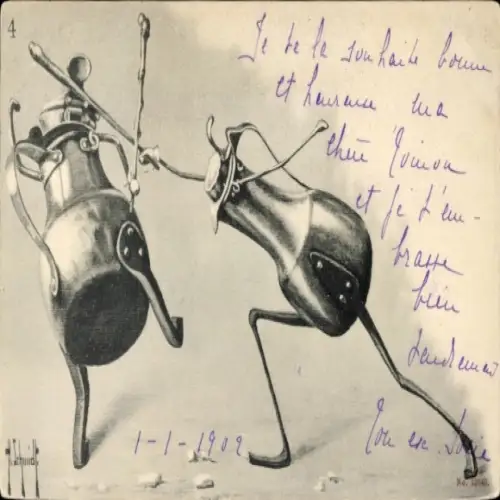 4
Je te la souhaite bonne
et heureuse ma
chère Toinon
et je t'em-
brasse
bien
tendrement
Ton ex.
1-1-1902
Schmidt
No.